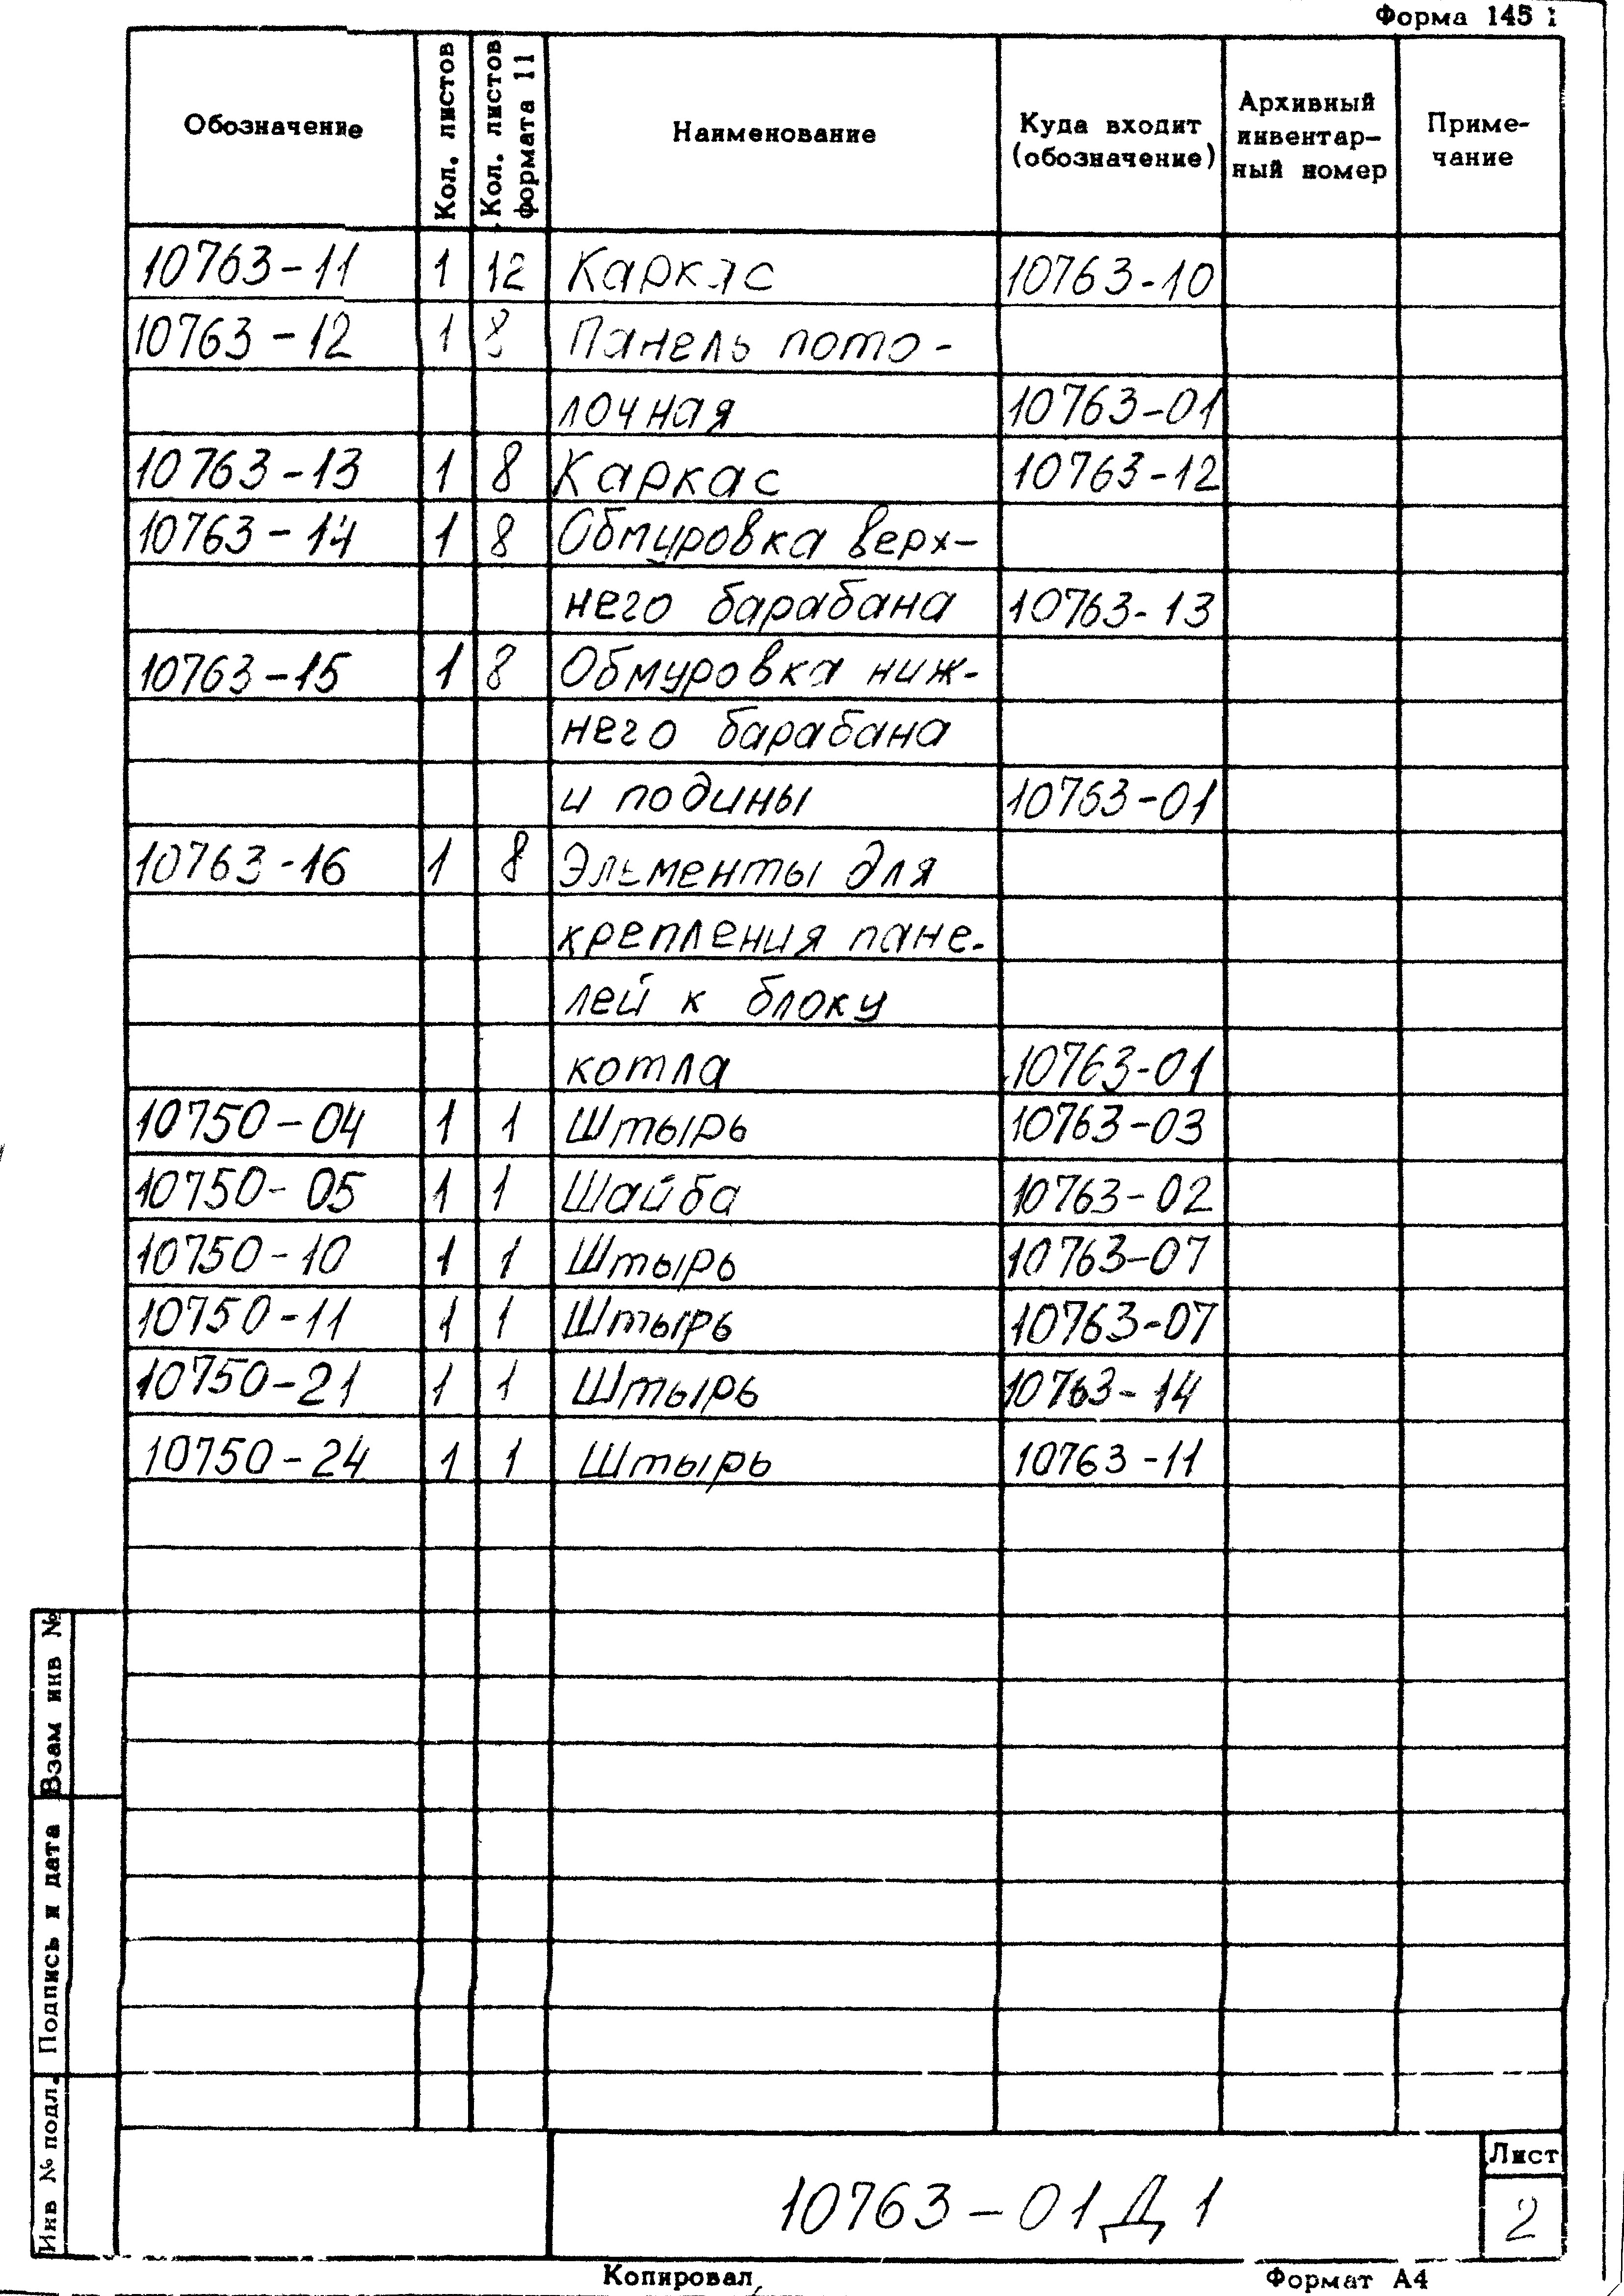 Форма 145 1
Обозначение
Кол. листов
Кол. листов
формата 11
Наименование
Куда входит
(обозначение)
Архивный
инвентар-
ный номер
Приме-
чание
10763-11 1 12 Каркас 10763-10
10763-12 1 8 Панель пото-
лочная 10763-01
10763-13 1 8 Каркас 10763-12
10763-14 1 8 Обмуровка верх-
него барабана 10763-13
10763-15 1 8 Обмуровка ниж-
него барабана
и подины 10763-01
10763-16 1 8 Элементы для
крепления пане-
лей к блоку
котла 10763-01
10750-04 1 1 Штырь 10763-03
10750-05 1 1 Шайба 10763-02
10750-10 1 1 Штырь 10763-07
10750-11 1 1 Штырь 10763-07
10750-21 1 1 Штырь 10763-14
10750-24 1 1 Штырь 10763-11
Взам инв №
Подпись и дата
Инв № подл.
10763-01Д1
Лист
2
Копировал
Формат А4